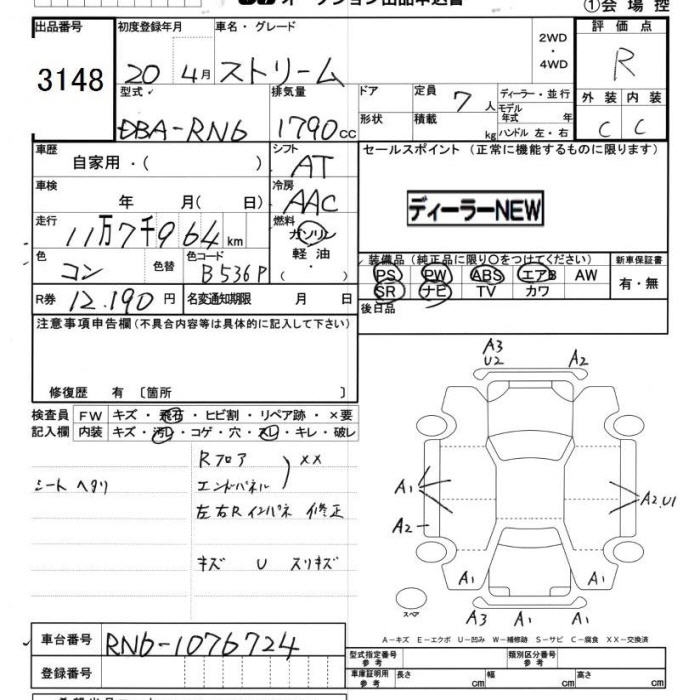 オークション出品申込書
①会場控
出品番号 3148
初度登録年月 20 4月
車名・グレード ストリーム
2WD
・
4WD
評価点 R
外装 内装
C C
型式 DBA-RN6
排気量 1790cc
ドア
定員 7人
ディーラー・並行
モデル年式 年
形状
積載 kg
ハンドル 左・右
車歴 自家用・( )
シフト AT
セールスポイント（正常に機能するものに限ります）
車検 年 月( 日)
冷房 AAC
ディーラーNEW
走行 11万7千964km
燃料 ガソリン
軽油
( ・ )
色 コン
色替
色コード B536P
装備品（純正品に限り○をつけてください）
新車保証書
PS PW ABS エアB AW
有・無
SR ナビ TV カワ
R券 12,190円
名変通知期限 月 日
後日品
注意事項申告欄（不具合内容等は具体的に記入して下さい）
修復歴 有 〔箇所 〕
検査員 FW キズ・飛石・ヒビ割・リペア跡・×要
記入欄 内装 キズ・汚レ・コゲ・穴・スレ・キレ・破レ
Rフロア
××
シート ヘタリ
エンドパネル
左右Rインパネ 修正
キズ U スリキズ
A3
U2
A2
A1
A2
A2.U1
A1
A1
スペア
A3 A1 A1
A-キズ E-エクボ U-凹み W-補修跡 S-サビ C-腐食 XX-交換済
車台番号 RN6-1076724
型式指定番号
参考
類別区分番号
参考
登録番号
車庫証明用
参考
長さ cm
幅 cm
高さ cm